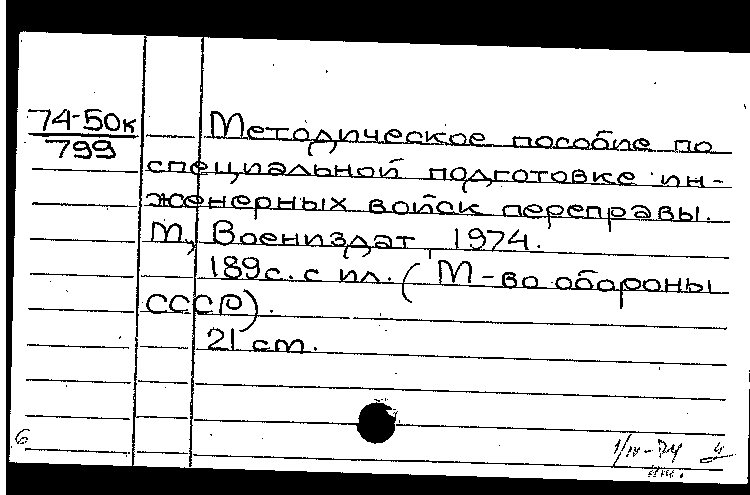 74-50к
799
Методическое пособие по
специальной подготовке ин-
женерных войск переправы.
М., Воениздат, 1974.
189с. с ил. (М-во обороны
СССР).
21 ст.
6
4